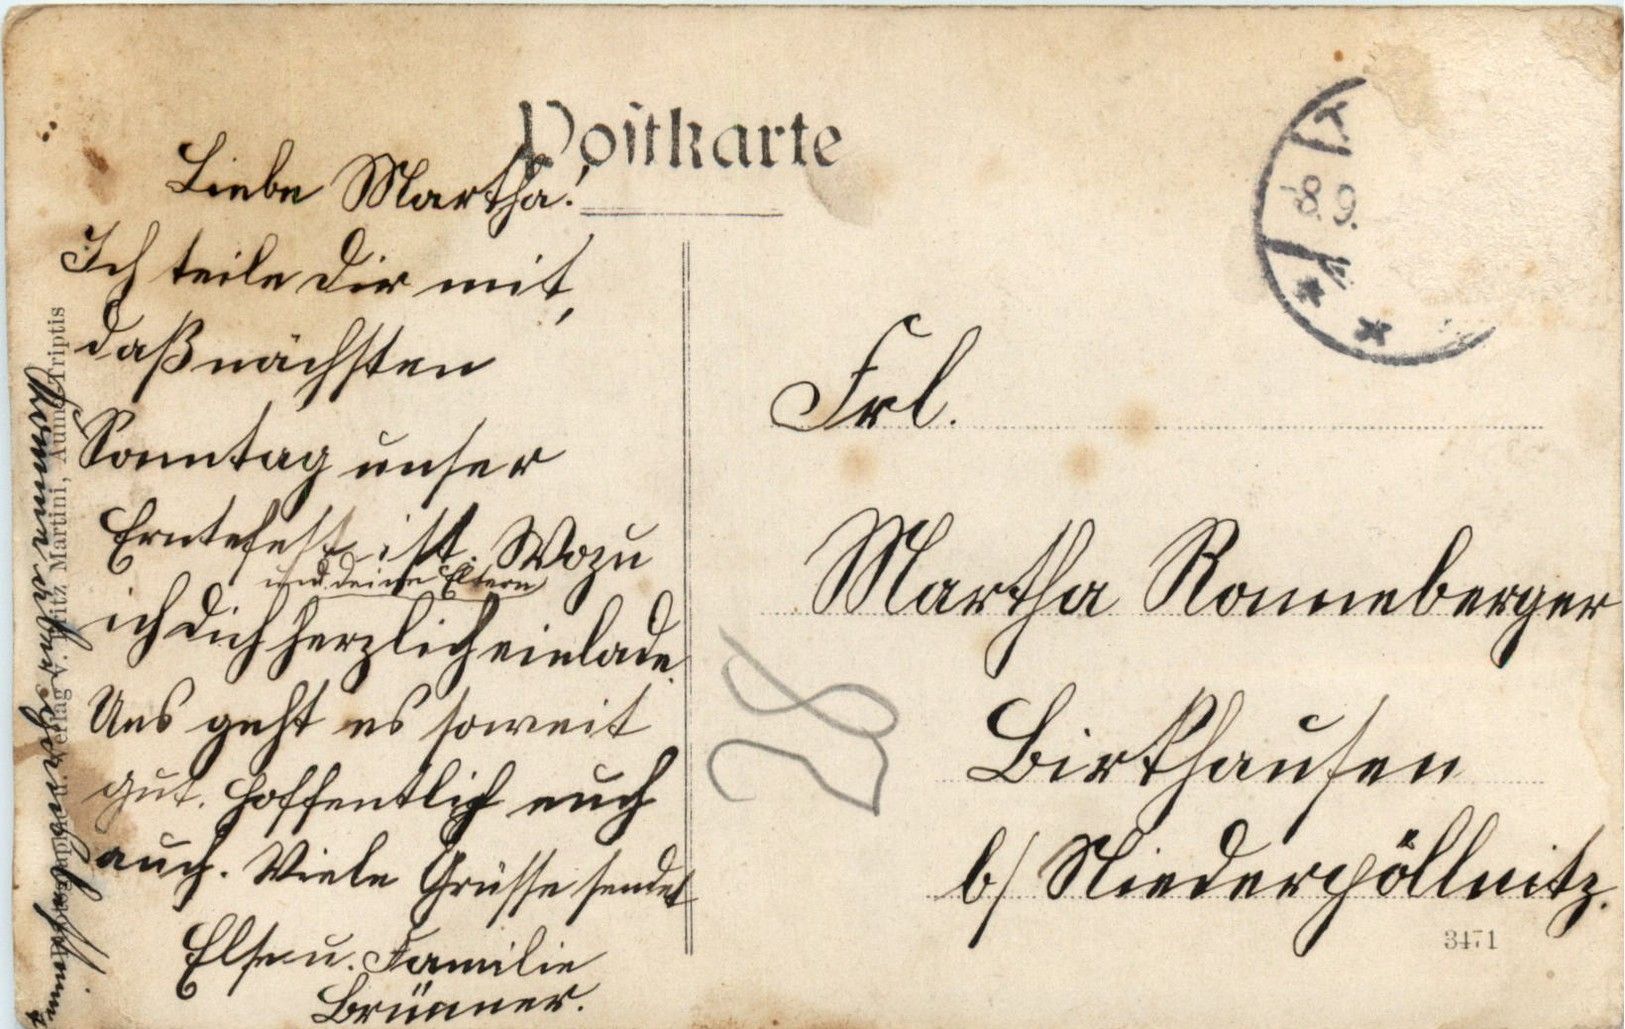 Postkarte
Liebe Martha!
Ich teile Dir mit,
daß nächsten
Sonntag unser
Erntefest ist. Wozu
und deine Eltern
ich Dich herzlich einlade.
Uns geht es soweit
gut. Hoffentlich euch
auch. Viele Grüsse sendet
Else u. Familie
Brünner.
Verlag v. Fritz Martini, Auma-Triptis
8.9.
Frl.
Martha Ronneberger
Birkhausen
b/ Niederpöllnitz.
3471
28